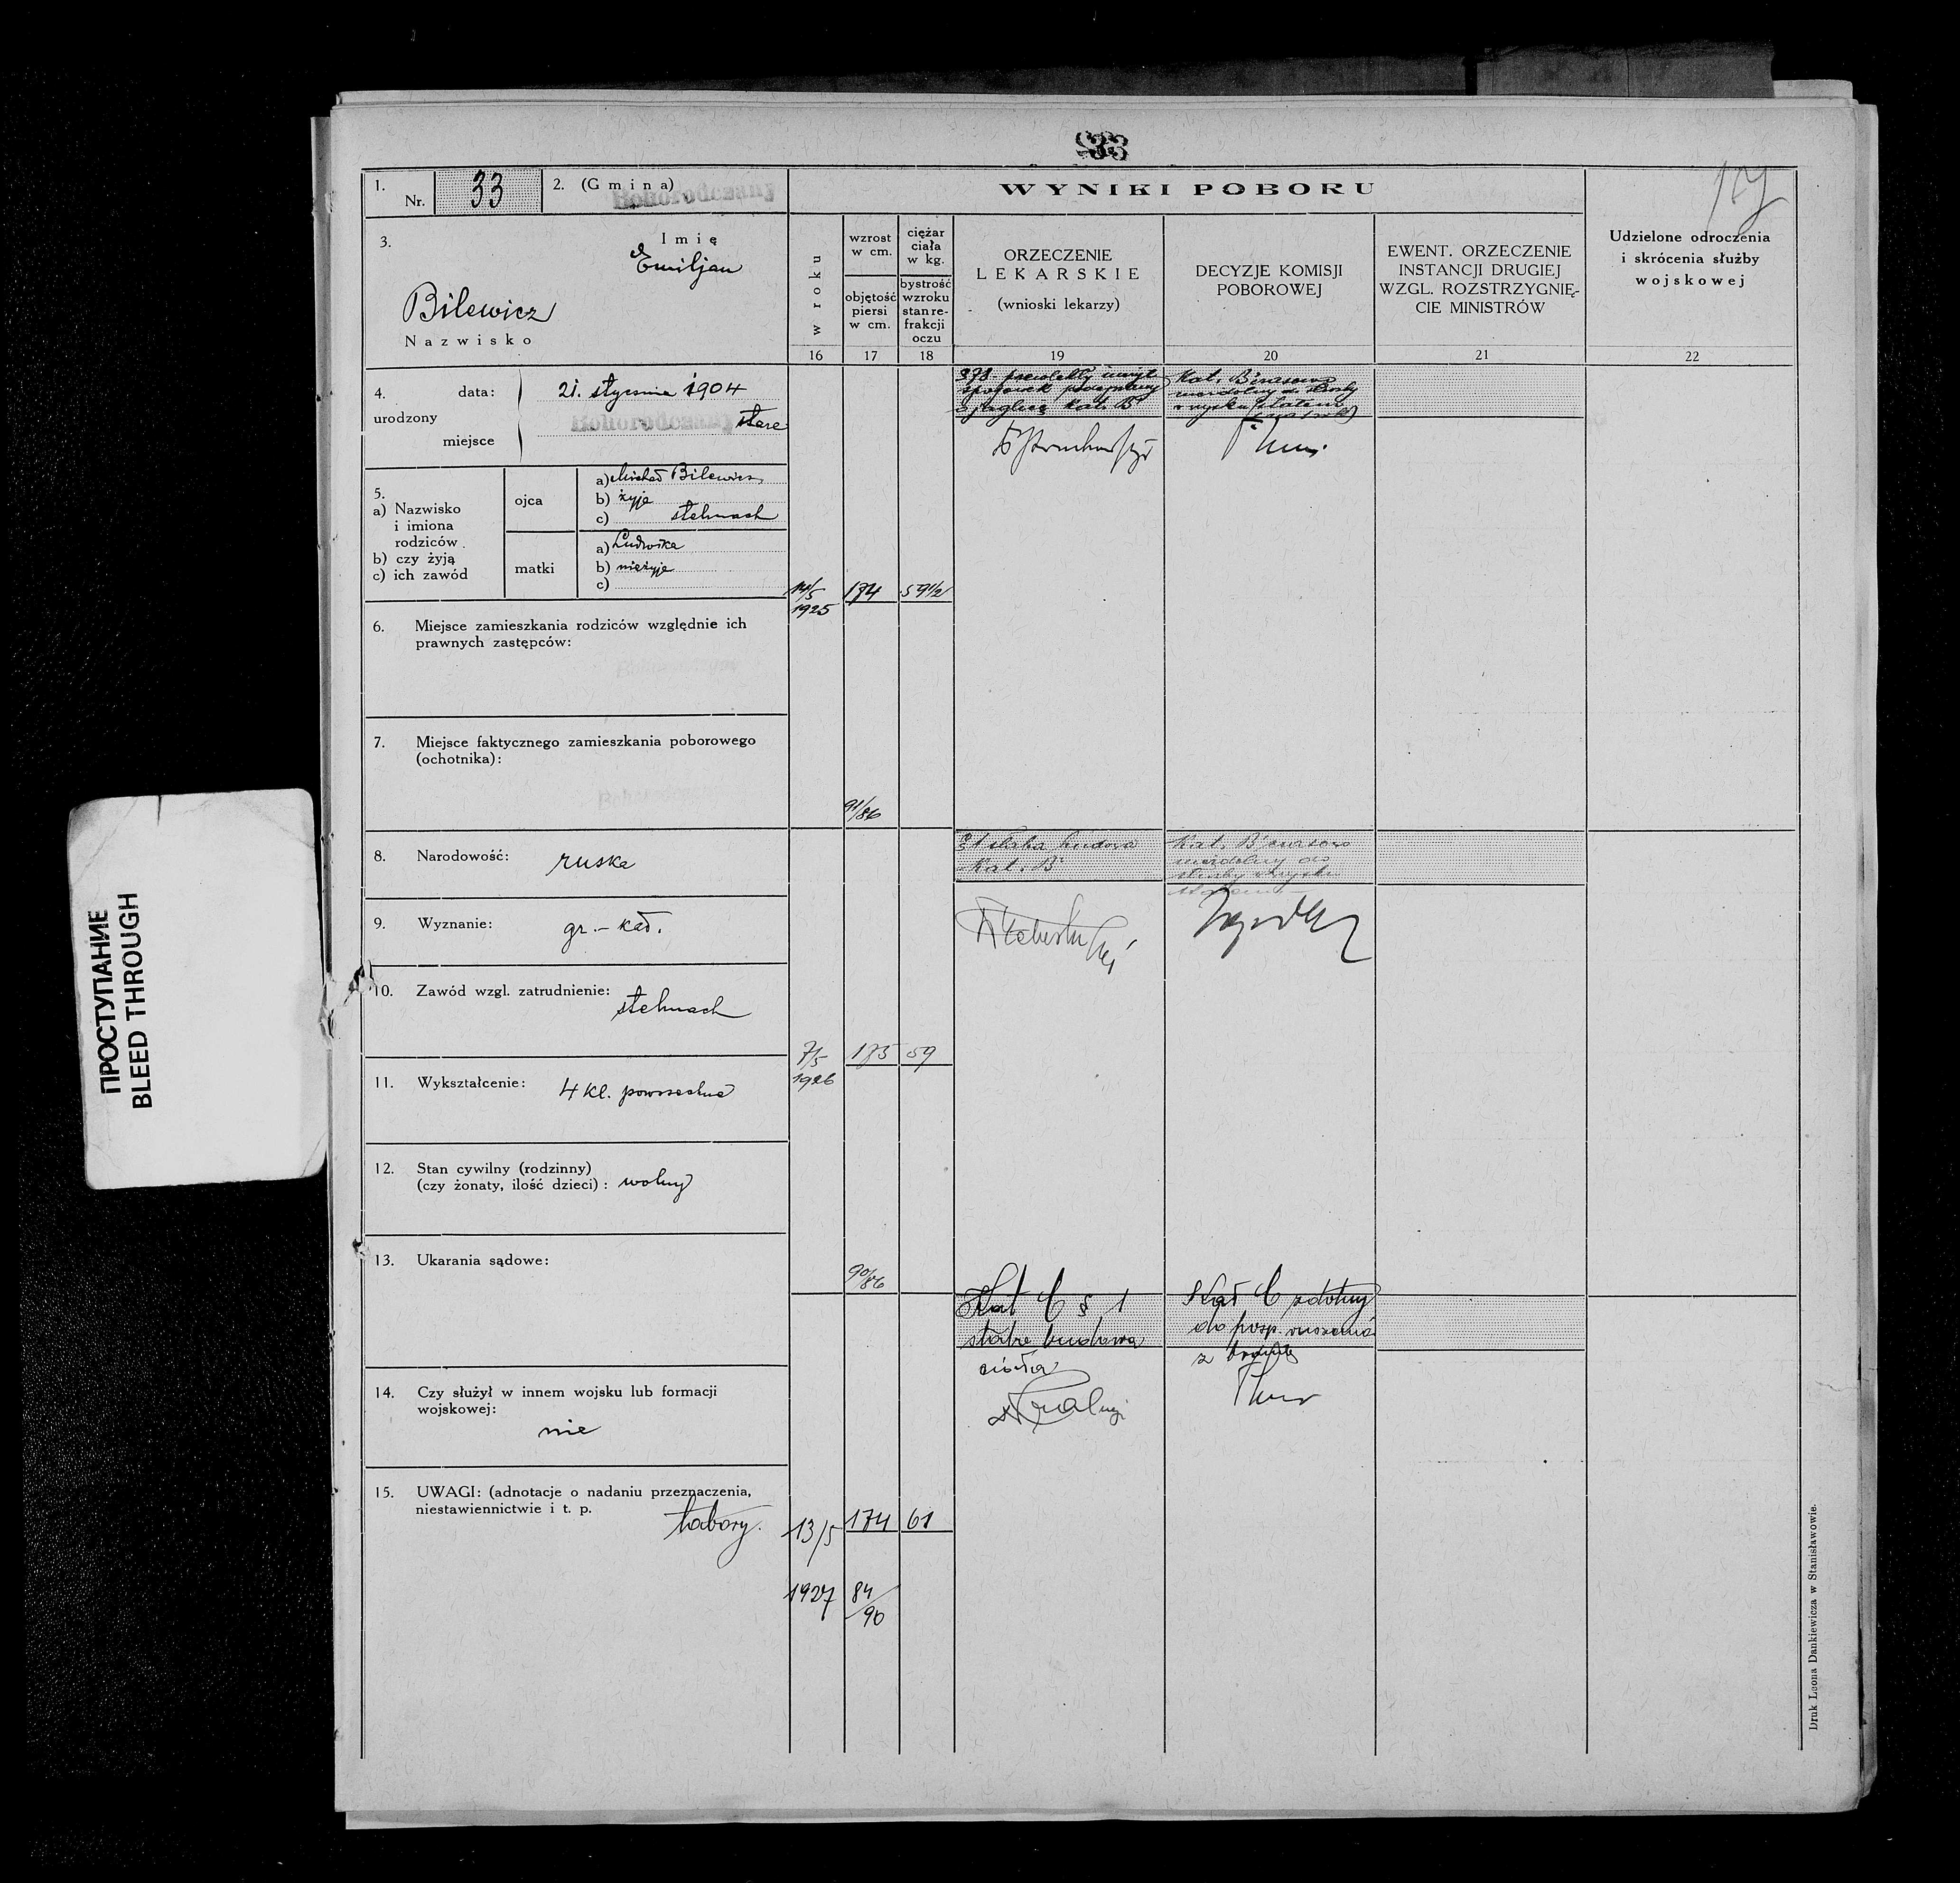 33
1.
Nr.
33
2. (Gmina)
Bohorodczany
WYNIKI POBORU
3.
Imię
Emiljan
Bilewicz
Nazwisko
w roku
wzrost
w cm.
objętość
piersi
w cm.
ciężar
ciała
w kg.
bystrość
wzroku
stan re-
frakcji
oczu
ORZECZENIE
LEKARSKIE
(wnioski lekarzy)
DECYZJE KOMISJI
POBOROWEJ
EWENT. ORZECZENIE
INSTANCJI DRUGIEJ
WZGL. ROZSTRZYGNIĘ-
CIE MINISTRÓW
Udzielone odroczenia
i skrócenia służby
wojskowej
16
17
18
19
20
21
22
4.
data:
21. stycznia 1904
urodzony
miejsce
Bohorodczany stare
5.
a) Nazwisko
i imiona
rodziców
b) czy żyją
c) ich zawód
ojca
a) Michał Bilewicz
b) żyje
c) stelmach
matki
a) Ludwika
b) nieżyje
c)
14/5
1925
174
59 1/2
91/86
kat. B
Kat. B
6. Miejsce zamieszkania rodziców względnie ich
prawnych zastępców:
7. Miejsce faktycznego zamieszkania poborowego
(ochotnika):
8. Narodowość: ruska
9. Wyznanie: gr.-kat.
10. Zawód wzgl. zatrudnienie:
stelmach
11. Wykształcenie: 4 kl. powszechne
12. Stan cywilny (rodzinny)
(czy żonaty, ilość dzieci): wolny
13. Ukarania sądowe:
14. Czy służył w innem wojsku lub formacji
wojskowej:
nie
15. UWAGI: (adnotacje o nadaniu przeznaczenia,
niestawiennictwie i t. p.
tabory.
słaba budowa
Kat. B
Kat. B czasowo
niezdolny do
służby wojsk
7/5
1926
173
59
90/86
Kat C § 1
słaba budowa
ciała
Kat C zdolny
do posp. ruszenia
z bronią
13/5
1927
174
61
84/90
Druk Leona Dankiewicza w Stanisławowie.
ПРОСТУПАНИЕ
BLEED THROUGH